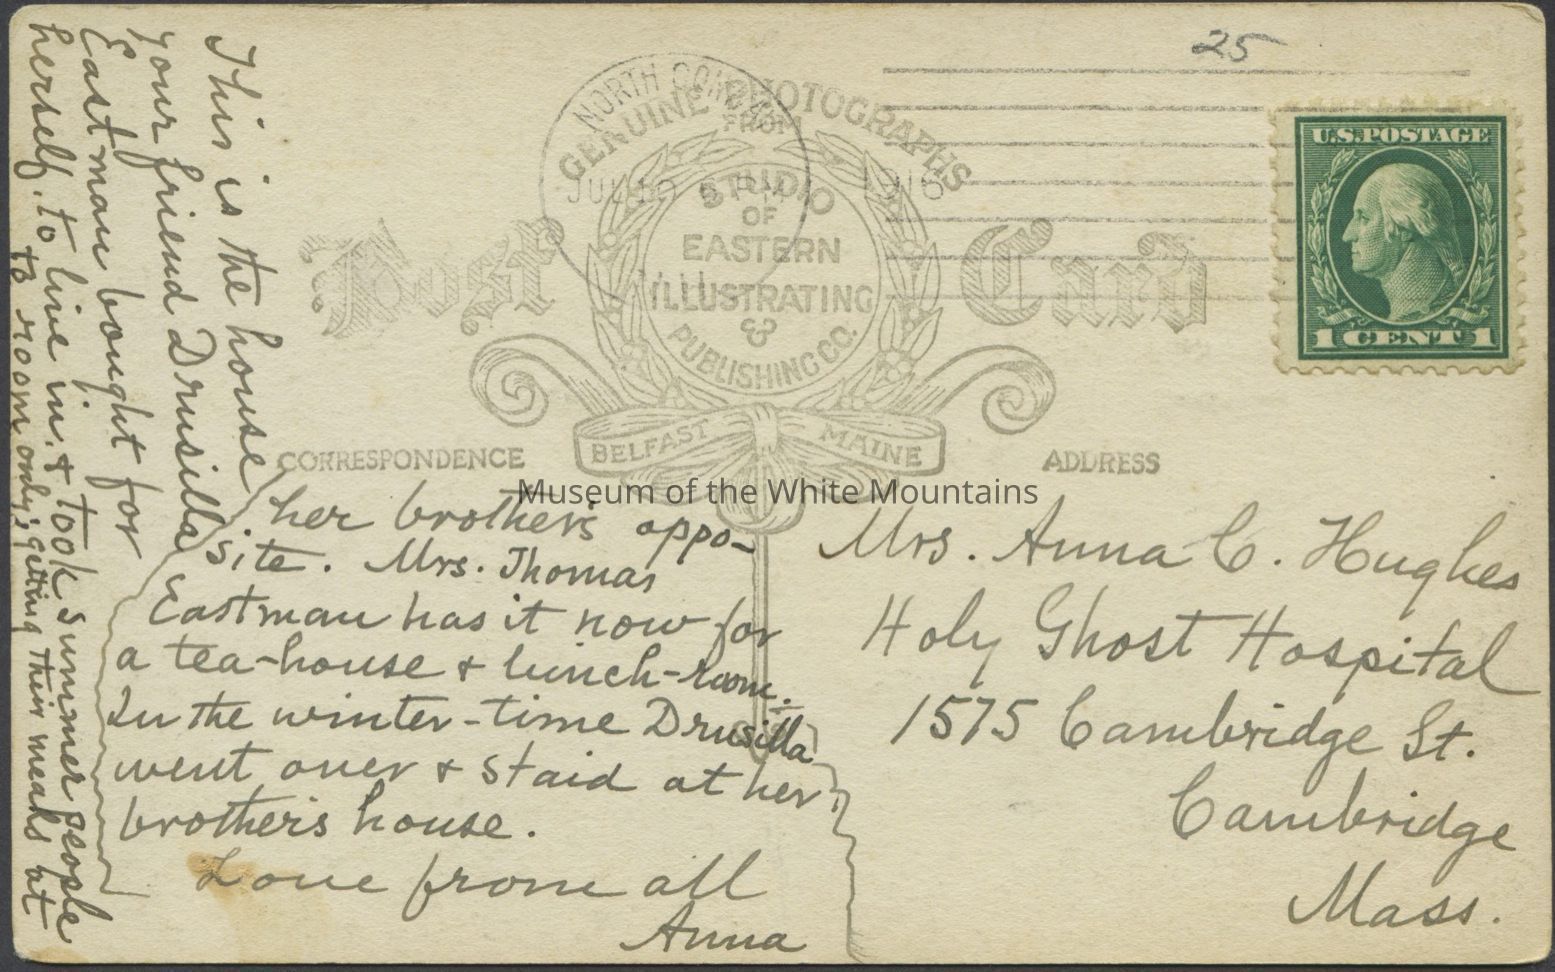 25
NORTH CONWAY
JUL 19 1916
U.S. POSTAGE
1 CENT 1
GENUINE PHOTOGRAPHS
FROM
STUDIO
OF
EASTERN
ILLUSTRATING
&
PUBLISHING CO.
BELFAST MAINE
Post Card
CORRESPONDENCE
ADDRESS
This is the house
your friend Drusilla
Eastman bought for
herself to live in. & took summer people
to room only; getting their meals at
her brother's oppo-
site. Mrs. Thomas
Eastman has it now for
a tea-house & lunch-room.
In the winter-time Drusilla
went over & staid at her
brother's house.
Love from all
Anna
Mrs. Anna C. Hughes
Holy Ghost Hospital
1575 Cambridge St.
Cambridge
Mass.
Museum of the White Mountains